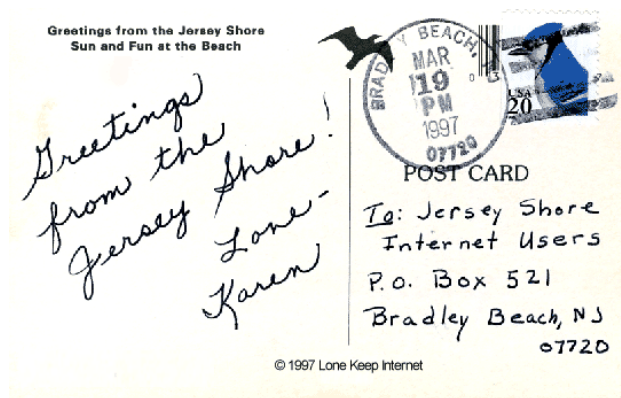 Greetings from the Jersey Shore
Sun and Fun at the Beach
Greetings
from the
Jersey Shore!
Love-
Karen
BRADLEY BEACH,
MAR
19
PM
1997
07720
USA
20
POST CARD
To: Jersey Shore
Internet Users
P.O. Box 521
Bradley Beach, NJ
07720
© 1997 Lone Keep Internet